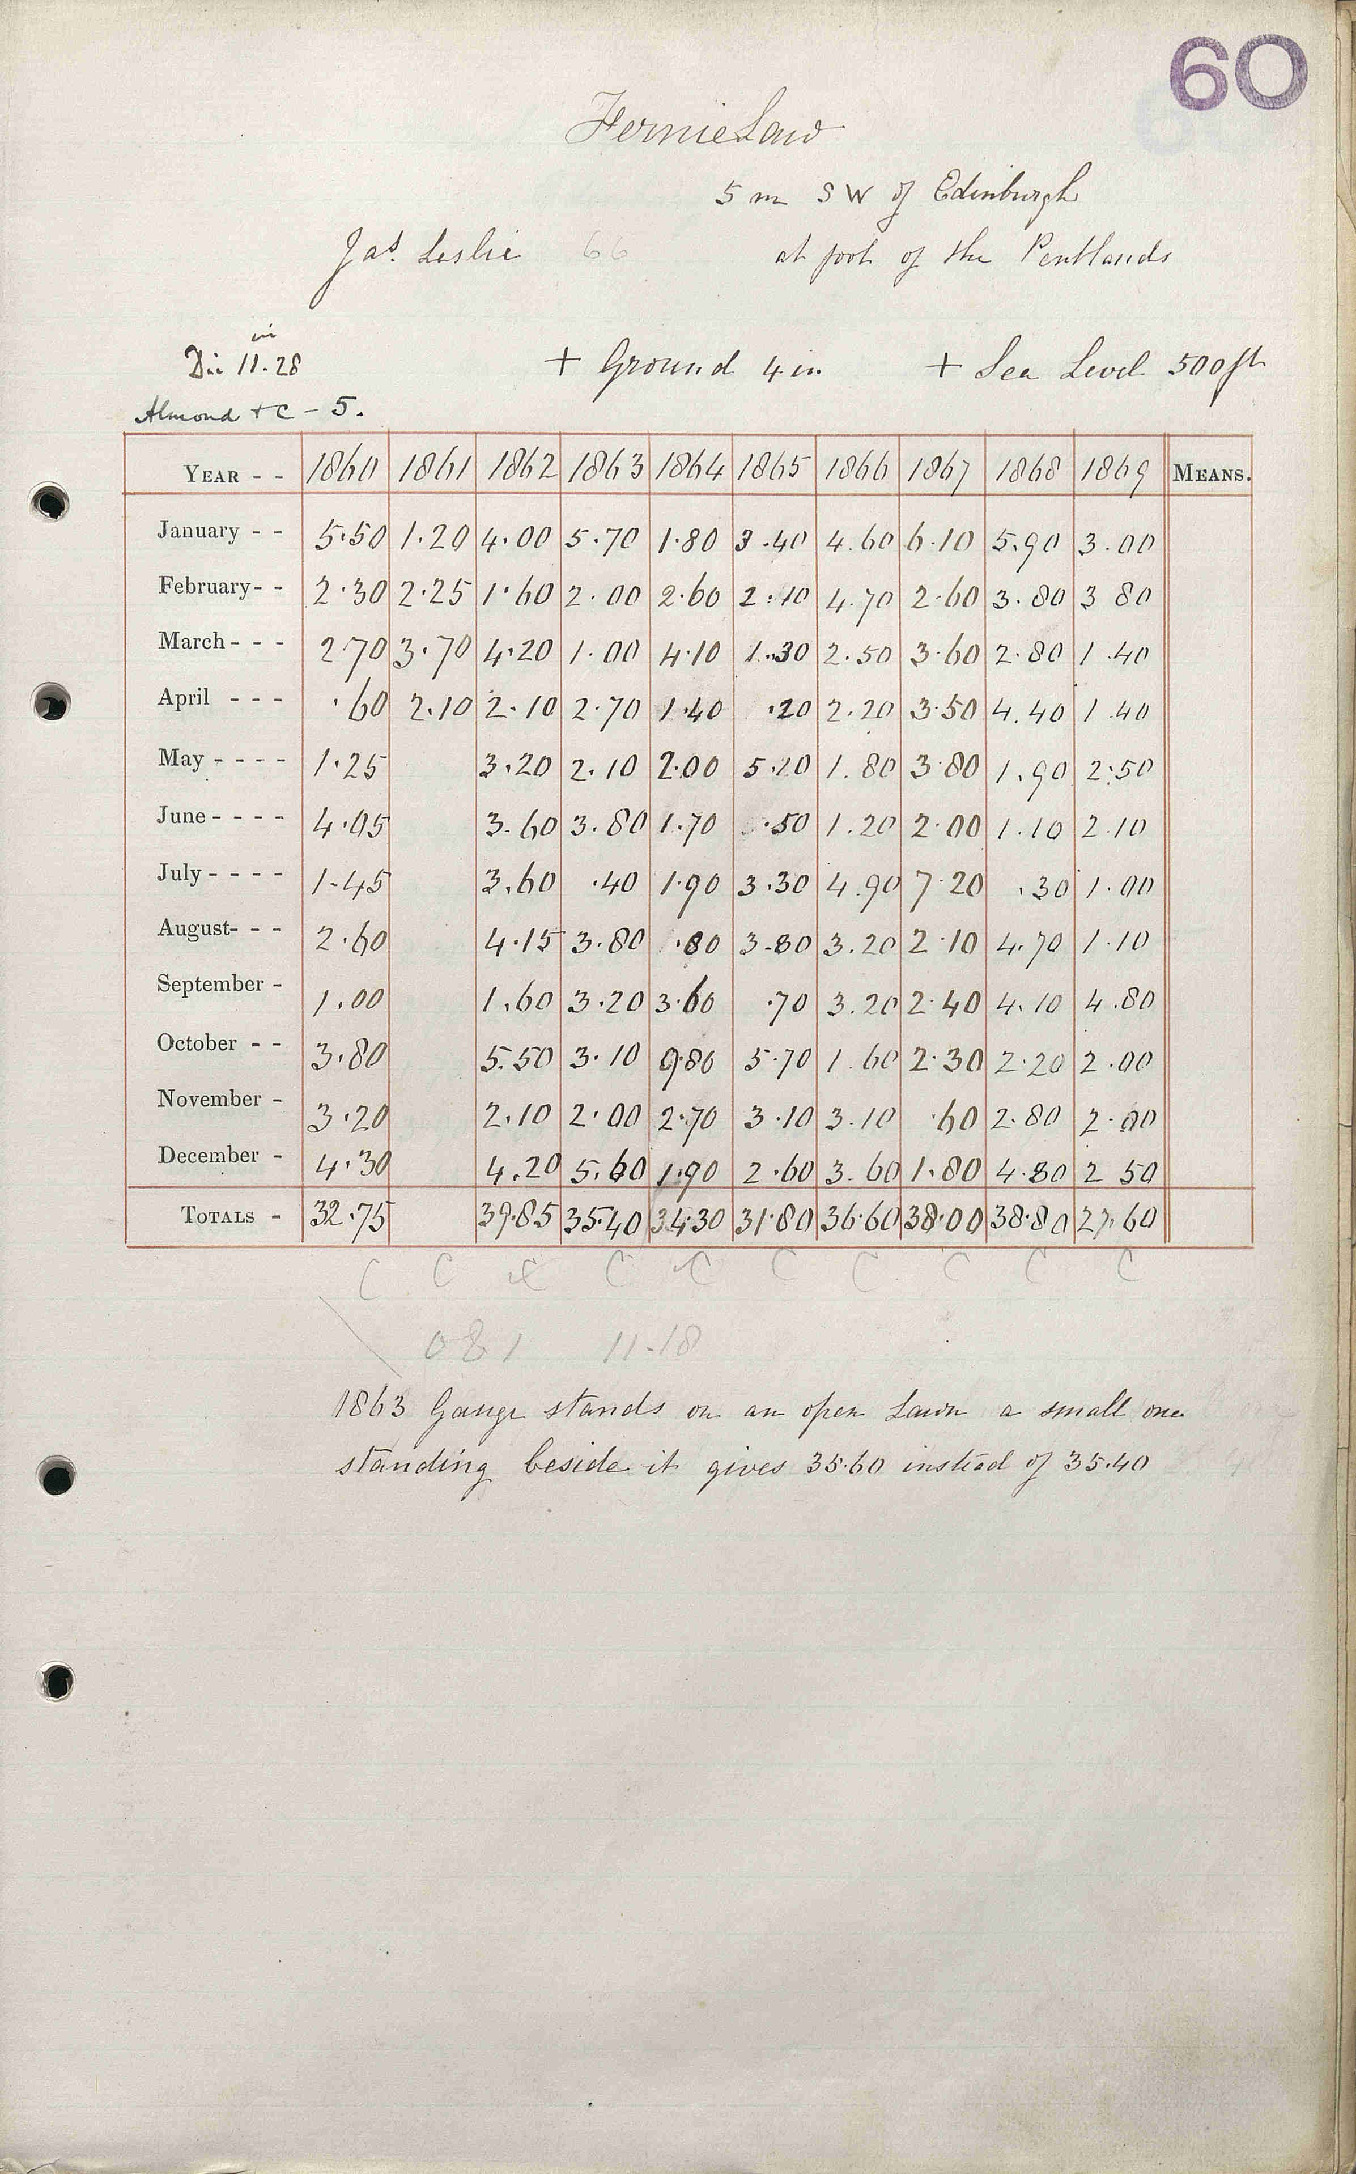 60
Fernielaw
5 m SW of Edinburgh
Jas. Leslie 66 at foot of the Pentlands
in
Di: 11.28 + Ground 4 in + Sea Level 500 ft
Almond + C - 5.
YEAR - - 1860 1861 1862 1863 1864 1865 1866 1867 1868 1869 MEANS.
January - - 5.50 1.20 4.00 5.70 1.80 3.40 4.60 6.10 5.90 3.00
February - - 2.30 2.25 1.60 2.00 2.60 2.10 4.70 2.60 3.80 3 80
March - - - 2.70 3.70 4.20 1.00 4.10 1.30 2.50 3.60 2.80 1.40
April - - - .60 2.10 2.10 2.70 1.40 .20 2.20 3.50 4.40 1.40
May - - - - 1.25 3.20 2.10 2.00 5.20 1.80 3.80 1.90 2.50
June - - - - 4.05 3.60 3.80 1.70 .50 1.20 2.00 1.10 2.10
July - - - - 1.45 3.60 .40 1.90 3.30 4.90 7.20 .30 1.00
August - - - 2.60 4.15 3.80 .80 3.80 3.20 2.10 4.70 1.10
September - 1.00 1.60 3.20 3.60 .70 3.20 2.40 4.10 4.80
October - - 3.80 5.50 3.10 9.80 5.70 1.60 2.30 2.20 2.00
November - 3.20 2.10 2.00 2.70 3.10 3.10 .60 2.80 2.00
December - 4.30 4.20 5.60 1.90 2.60 3.60 1.80 4.80 2 50
TOTALS - 32.75 39.85 35.40 34.30 31.80 36.60 38.00 38.80 27.60
C C C C C C C C C C
081 11.18
1863 Gauge stands on an open Lawn a small one
standing beside it gives 35.60 instead of 35.40